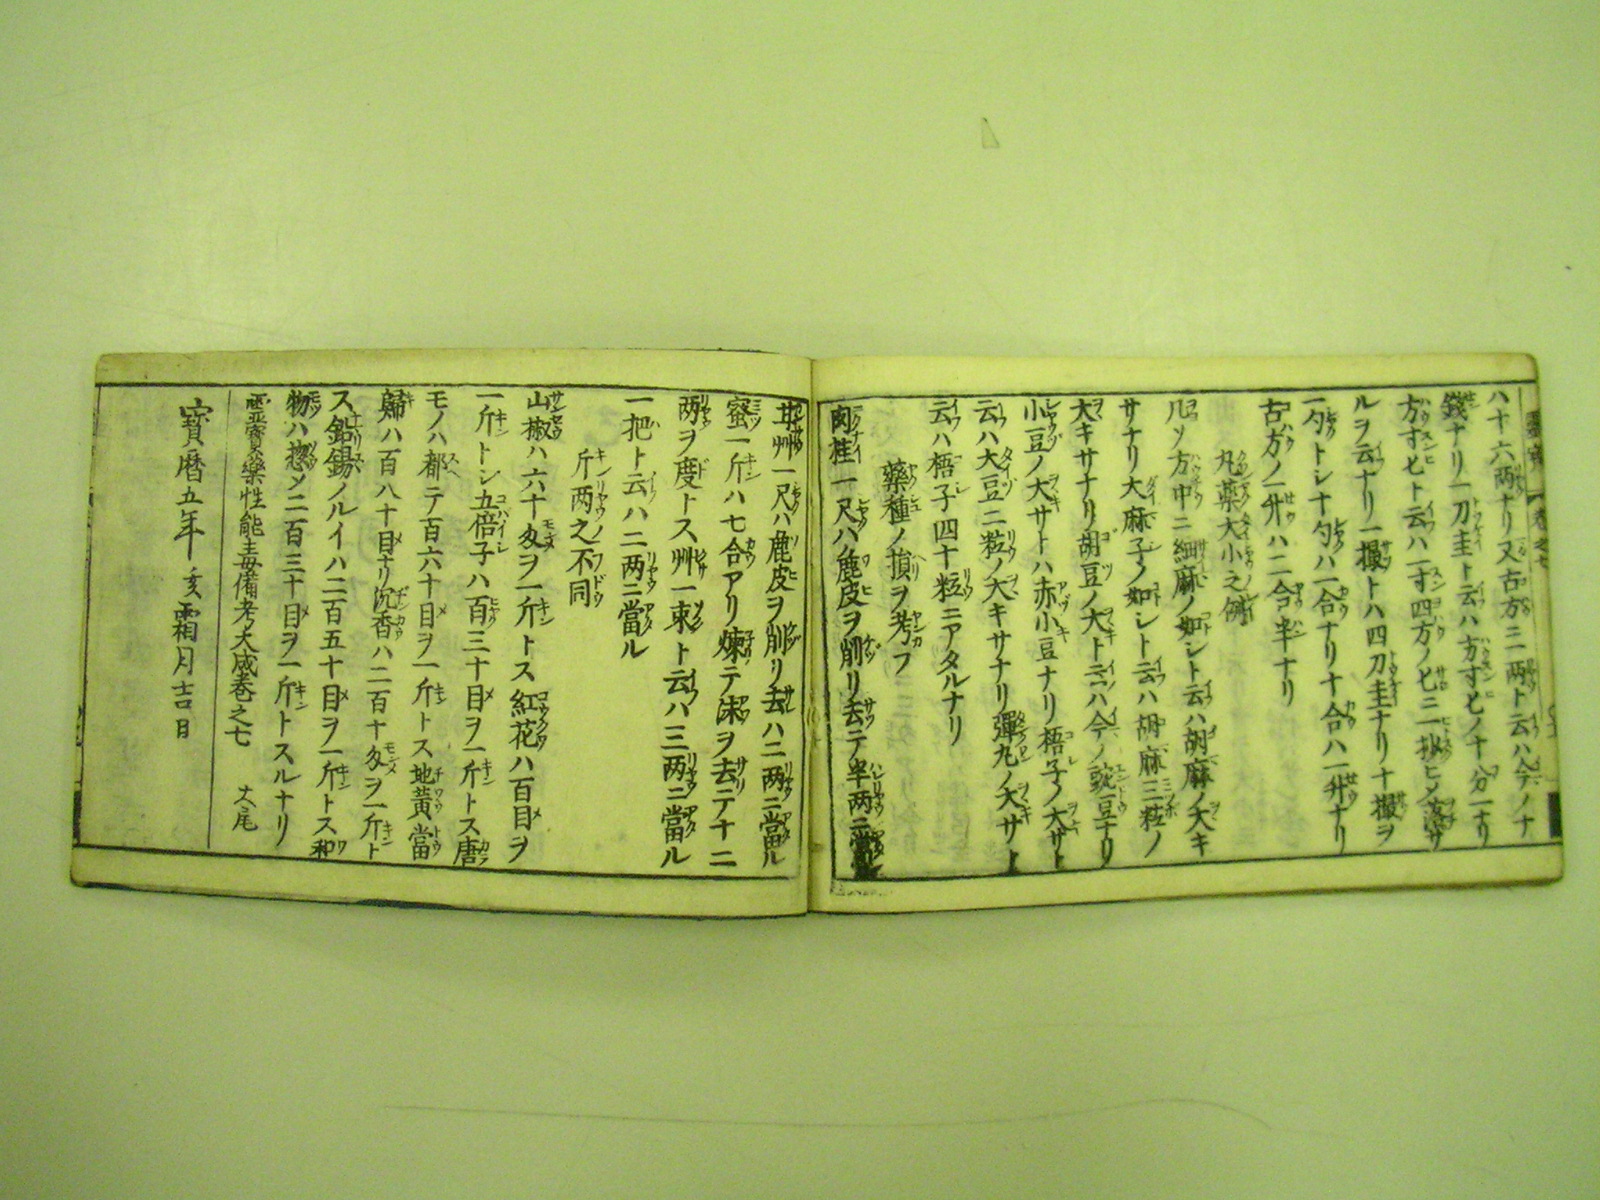 八十六两ナリ又古方ニ一两ト云ハ今ノナ
錢ナリ一刀圭ト云ハ方寸匕ノ十分一ナリ
方寸匕ト云ハ一寸四方ノ匕ニ抄ヒ〆落サ
ルヲ云ナリ一撮トハ四刀圭ナリ十撮ヲ
一勺トシ十勺ハ一合ナリ十合ハ一升ナリ
古方ノ一升ハ二合半ナリ
丸藥大小之例
凡ソ方中ニ細麻ノ如シト云ハ胡麻ノ大キ
サナリ大麻子ノ如シト云ハ胡麻三粒ノ
大キサナリ胡豆ノ大ト云ハ今ノ豌豆ナリ
小豆ノ大サトハ赤小豆ナリ梧子ノ大サト
云ハ大豆二粒ノ大キサナリ彈丸ノ大サト
云ハ梧子四十粒ニアタルナリ
藥種ノ損ヲ考フ
肉桂一尺ハ麁皮ヲ削リ去テ半两ニ當ル
甘艸一尺ハ麁皮ヲ削リ去ハ二两ニ當ル
蜜一斤ハ七合アリ煉テ沫ヲ去テ十二
两ヲ度トス艸一束ト云ハ三两ニ當ル
一把ト云ハ二两ニ當ル
斤两之不同
山椒ハ六十匁ヲ一斤トス紅花ハ百目ヲ
一斤トシ五倍子ハ百三十目ヲ一斤トス唐
モノハ都テ百六十目ヲ一斤トス地黄當
歸ハ百八十目ナリ沉香ハ二百十匁ヲ一斤ト
ス鉛錫ノルイハ二百五十目ヲ一斤トス和
物ハ惣〆二百三十目ヲ一斤トスルナリ
靈寶藥性能毒備考大成卷之七 大尾
寳暦五年乙亥霜月吉日